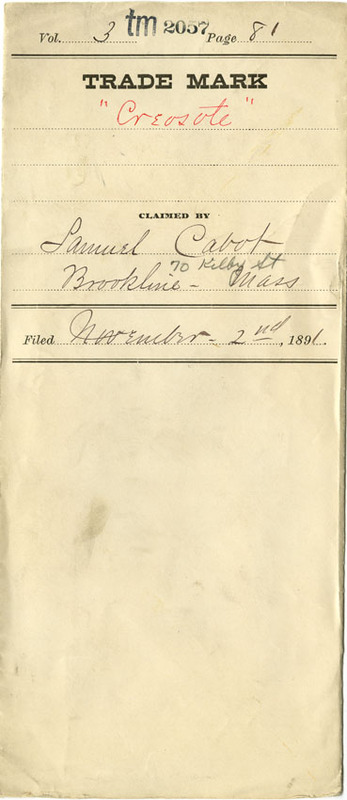 Vol. 3 tm 2057 Page 81
TRADE MARK
"Creosote"
CLAIMED BY
Samuel Cabot
70 Kilby St
Brookline - Mass
Filed November - 2nd, 1891.